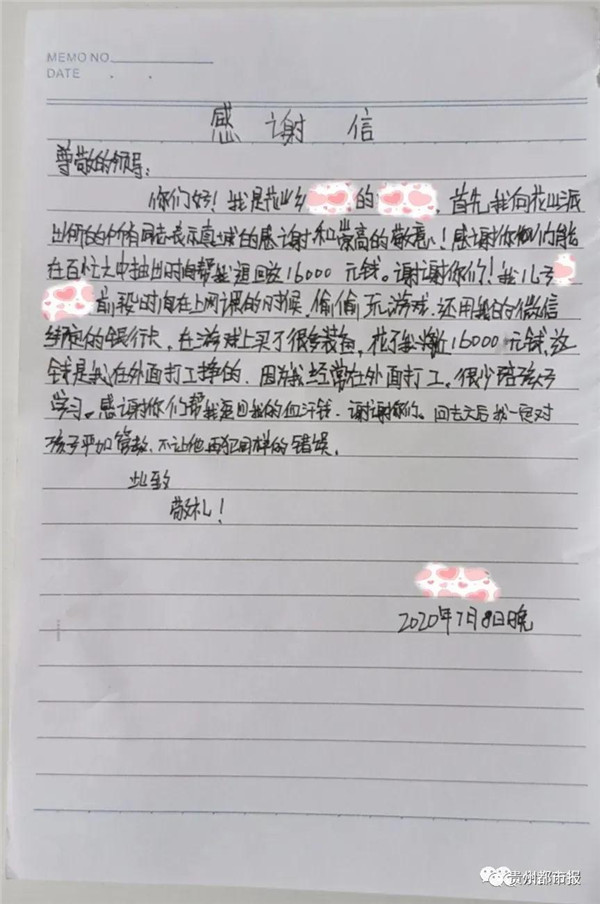 MEMO NO.
DATE . .
感谢信
尊敬的领导:
你们好！我是花山乡的，首先，我向花山派
出所的所有同志表示真诚的感谢和崇高的敬意！感谢你们能
在百忙之中抽出时间帮我追回这16000元钱。谢谢你们！我儿子
前段时间在上网课的时候，偷偷玩游戏，还用我的微信
绑定的银行卡，在游戏上买了很多装备，花了我将近16000元钱，这
钱是我在外面打工挣的，因为我经常在外面打工，很少陪孩子
学习。感谢你们帮我追回我的血汗钱，谢谢你们。回去之后我一定对
孩子严加管教，不让他再犯同样的错误。
此致
敬礼！
2020年7月8日晚
贵州都市报